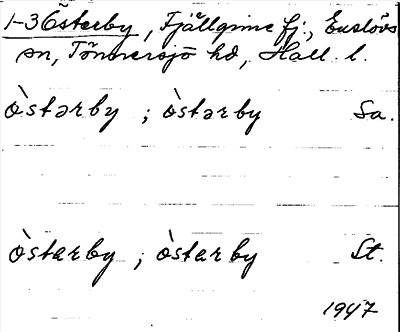 1-3 Österby, Fjällgime fj., Enslövs
sn, Tönnersjö hd, Hall. l.
òstərby ; òstərby Sa.
òstarby ; òstarby St.
1947